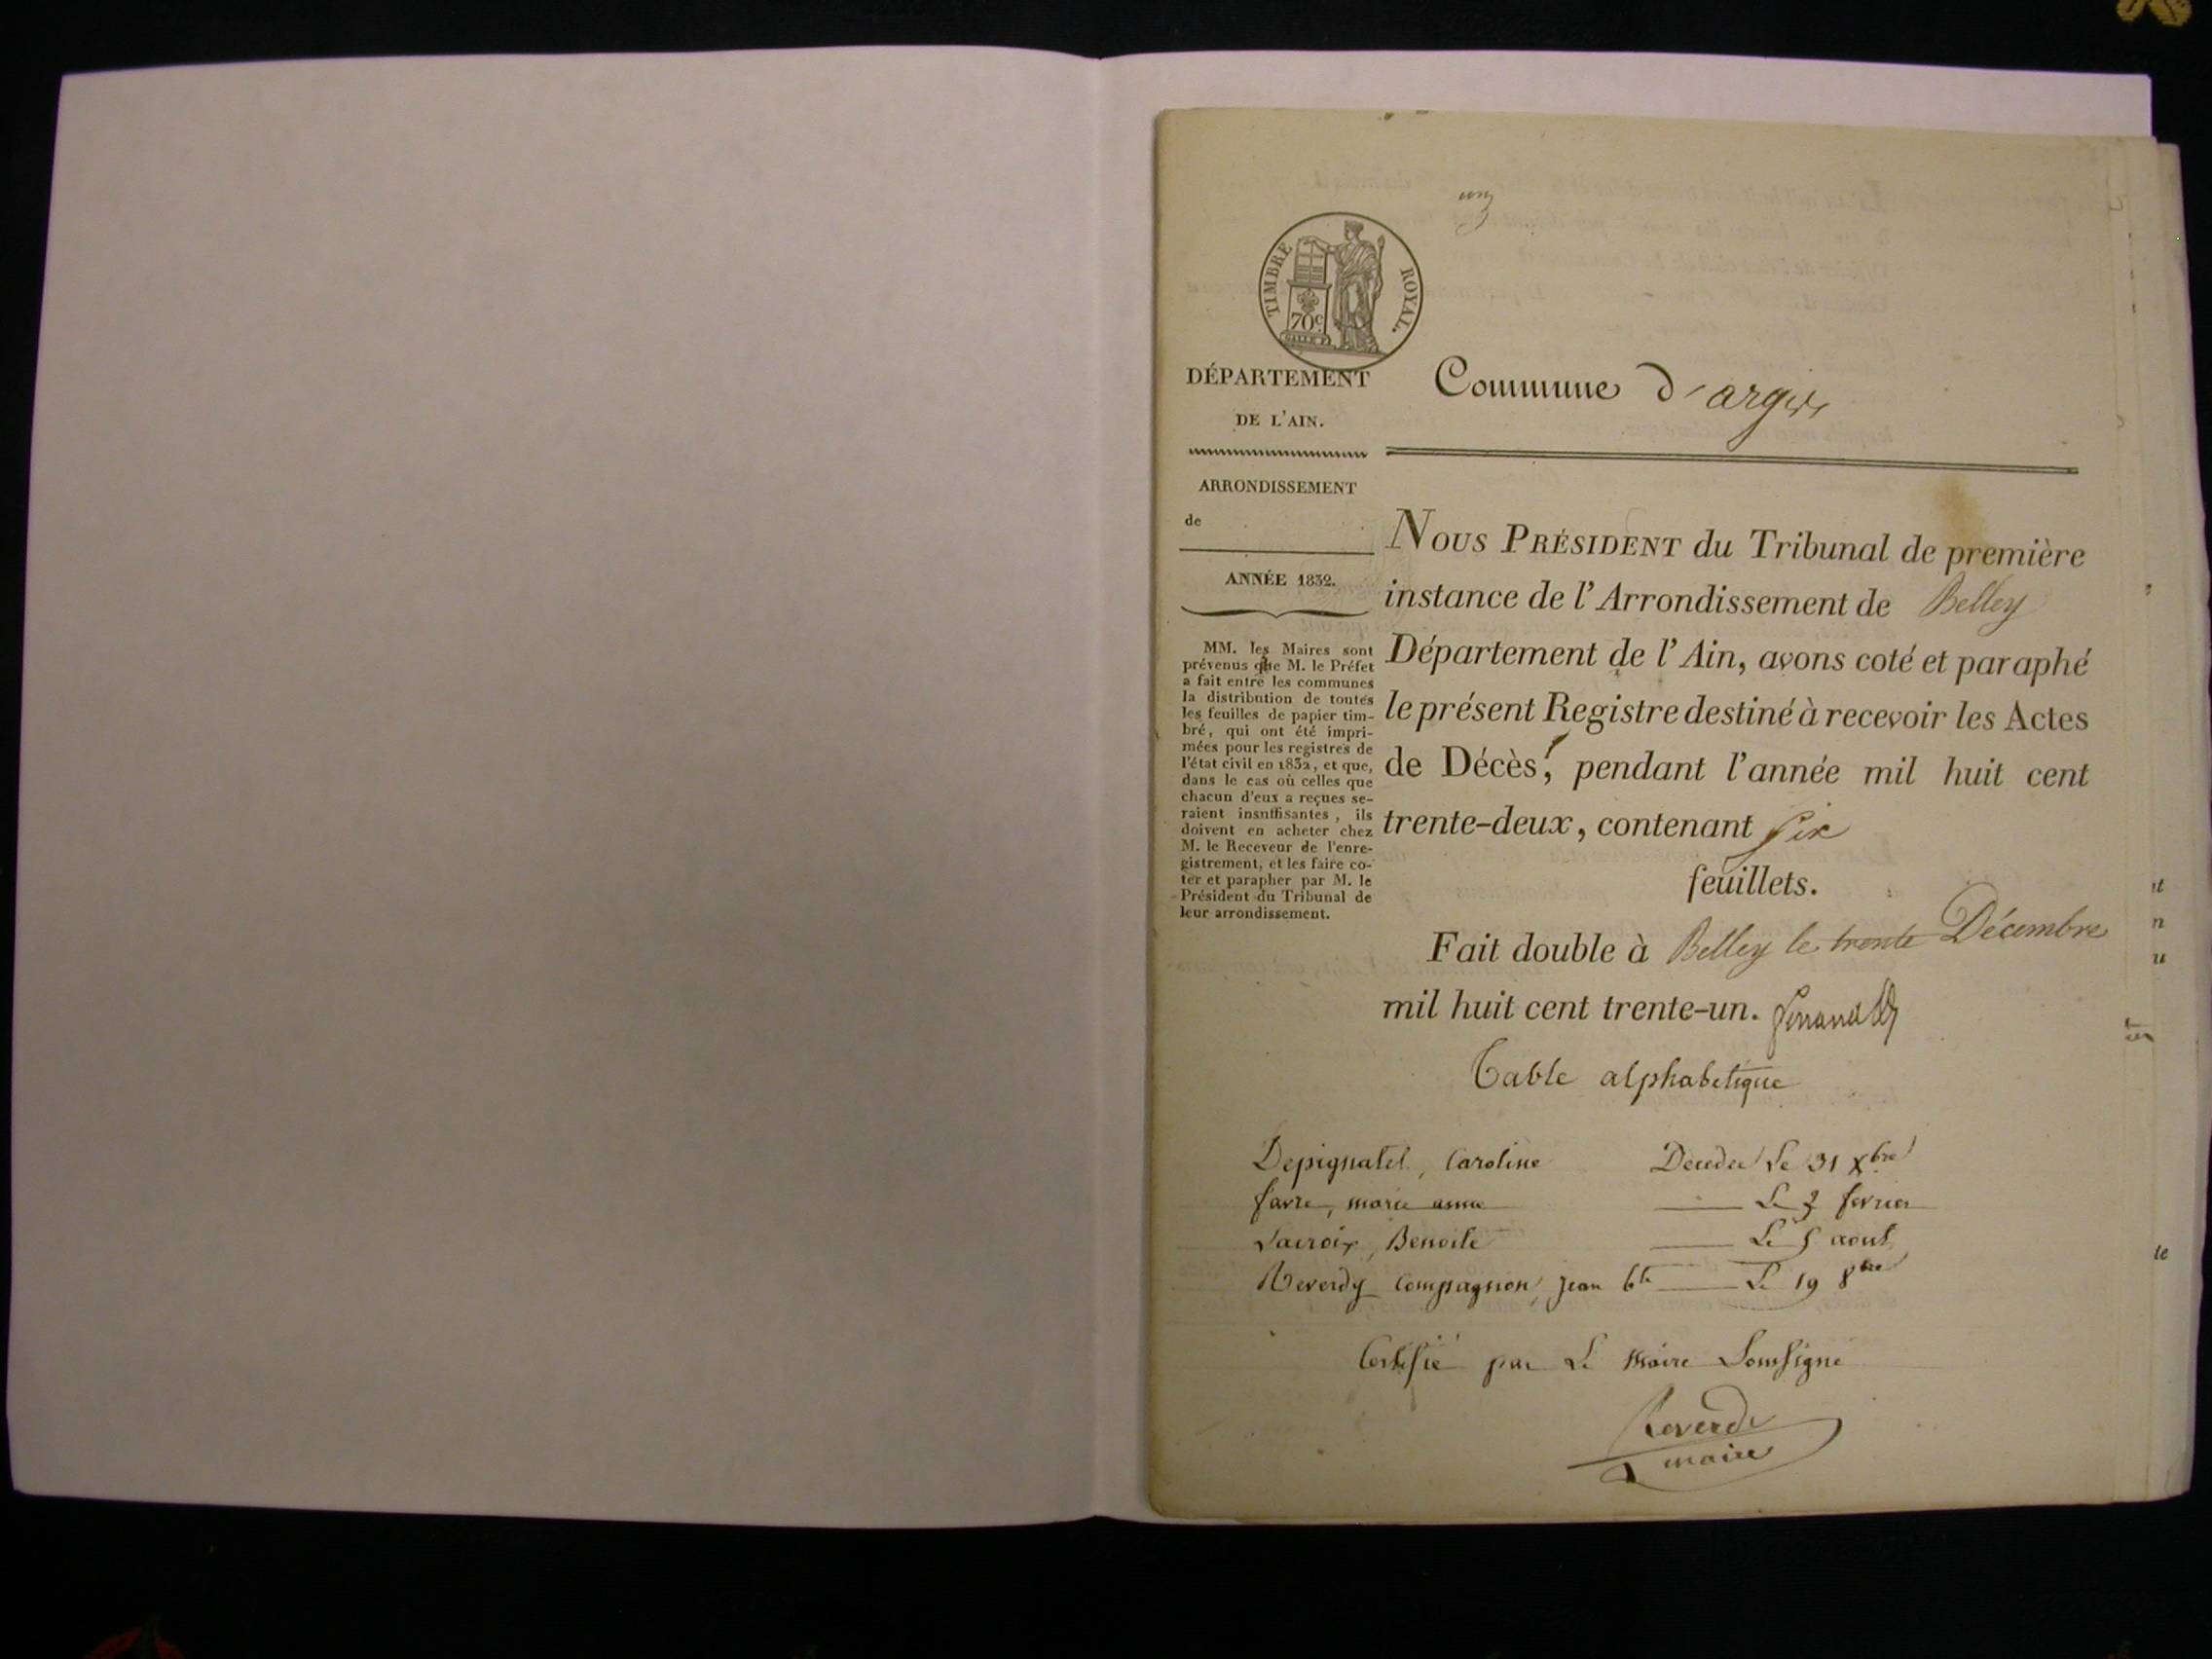 un
TIMBRE ROYAL.
70 c.
DÉPARTEMENT
DE L'AIN.
Commune d'argis
ARRONDISSEMENT
de
ANNÉE 1832.
MM. les Maires sont
prévenus que M. le Préfet
a fait entre les communes
la distribution de toutes
les feuilles de papier tim-
bré, qui ont été impri-
mées pour les registres de
l'état civil en 1832, et que,
dans le cas où celles que
chacun d'eux a reçues se-
raient insuffisantes, ils
doivent en acheter chez
M. le Receveur de l'enre-
gistrement, et les faire co-
ter et parapher par M. le
Président du Tribunal de
leur arrondissement.
NOUS PRÉSIDENT du Tribunal de première
instance de l'Arrondissement de Belley
Département de l'Ain, avons coté et paraphé
le présent Registre destiné à recevoir les Actes
de Décès, pendant l'année mil huit cent
trente-deux, contenant six
feuillets.
Fait double à Belley le trente Décembre
mil huit cent trente-un.
Table alphabetique
Depignatel, Caroline Decedee Le 31 Xbre
favre, marie anne Le 3 fevrier
Lacroix, Benoite Le 5 aout
Reverdy Compagnon, Jean bte Le 19 8bre
Certifié par Le Maire Soussigne
Reverdy
maire